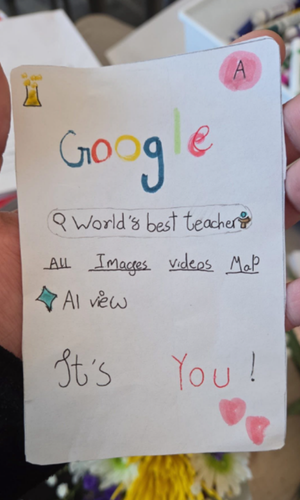 A
Google
World's best teacher
All Images videos Map
AI view
It's You!